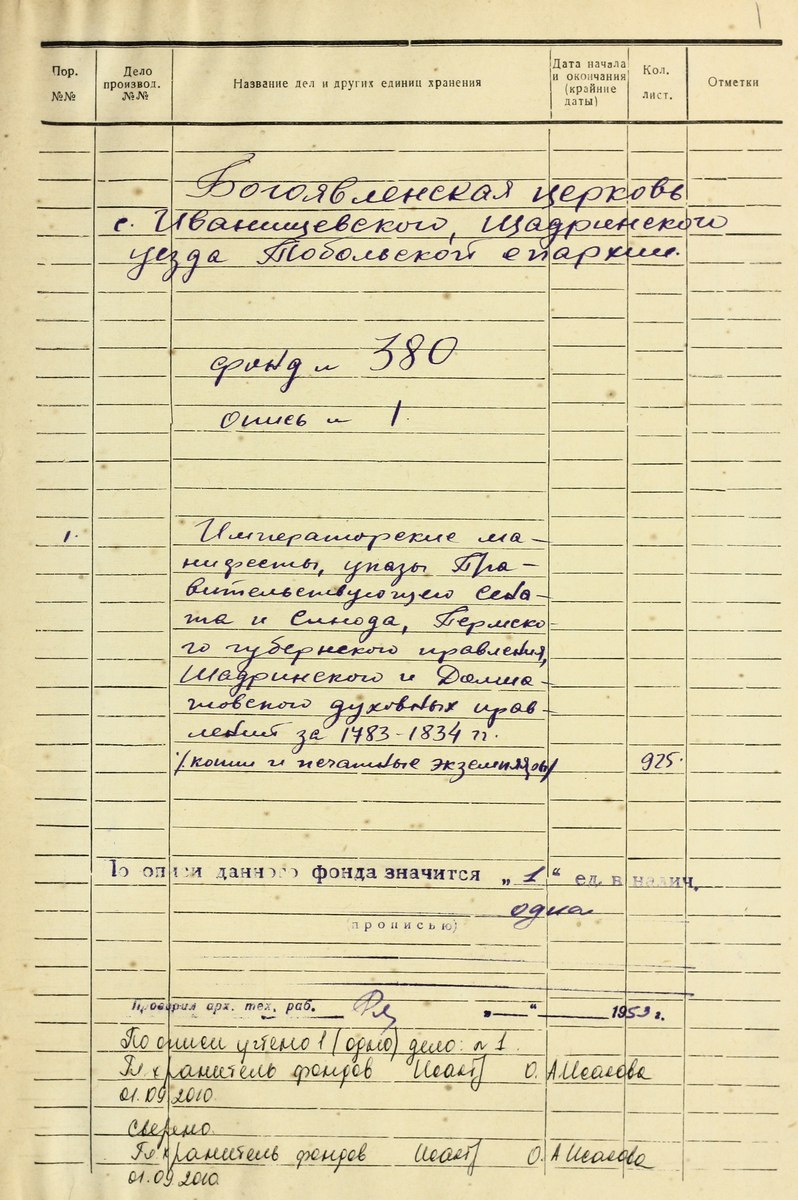 1
Пор. №№
Дело производ. №№
Название дел и других единиц хранения
Дата начала и окончания (крайние даты)
Кол. лист.
Отметки
Богоявленская церковь
с. Иванищевского, Шадринского
уезда Тобольской епархии.
фонд № 380
опись № 1
1. Императорские ма-
нифесты, указы Пра-
вительствующего Сена-
та и Синода, Пермско-
го губернского правления,
Шадринского и Далма-
товского духовных прав-
лений за 1783-1834 гг.
/копии и печатные экземпляры/ 925.
По описи данного фонда значится „1“ ед. в налич.
одна
(прописью)
Проверил арх. тех. раб. „ “ 1953 г.
По описи учтено 1 (одно) дело: № 1
Гл. хранитель фондов О. А Исакова
01.09 2010
Сверено.
Гл. хранитель фондов О. А Исакова
01.09 2010